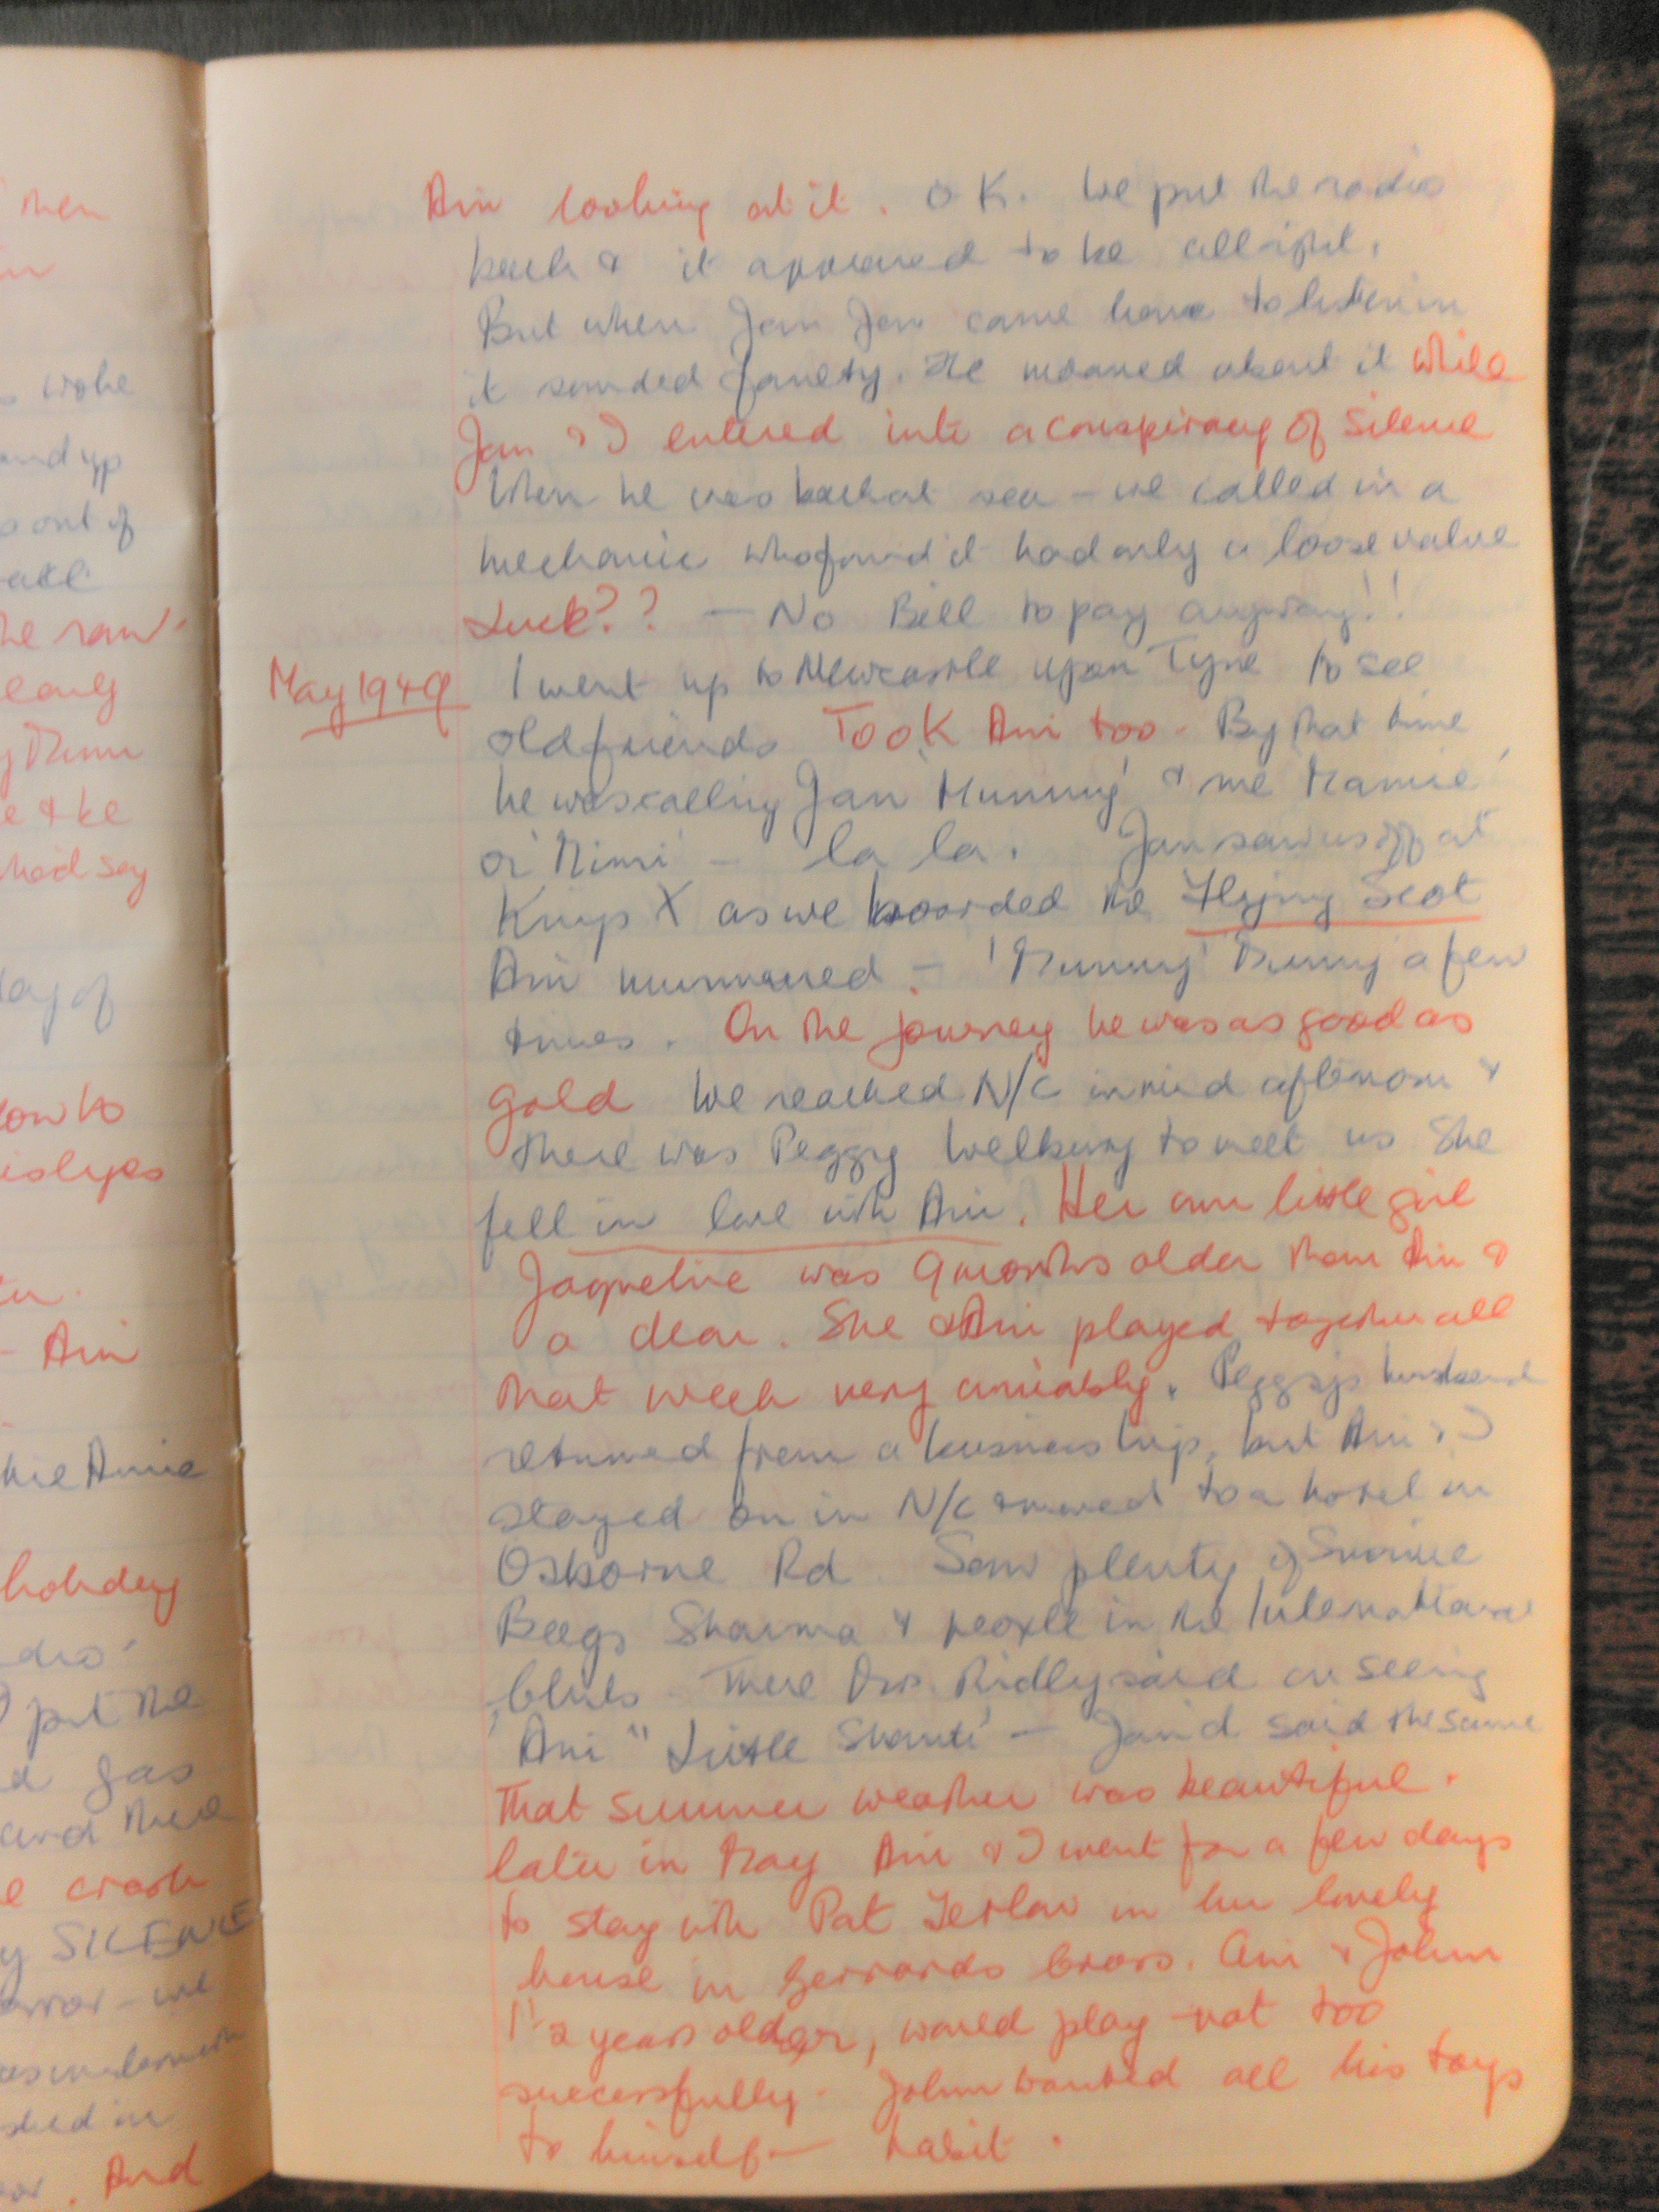 Then
woke
and up
out of
all
he ran
early
e & he
had say
day of
how to
his eyes
- Ani
Annie
holiday
put the
gas
and there
e crash
SILENCE
error - we
. And
Ani looking at it. OK. We put the radio
back & it appeared to be allright.
But when Jan Jan came home to listen in
it sounded faulty. He moaned about it while
Jan & I entered into a conspiracy of silence
When he was back at sea - we called in a
mechanic who found it had only a loose valve
Luck?? - No Bill to pay anyway!!
May 1949 I went up to Newcastle upon Tyne to see
old friends Took Ani too. By that time
he was calling Jan 'Mummy' & me 'Mamie'
or 'Mimi' - la la. Jan saw us off at
Kings X as we boarded the Flying Scot
Ani murmured - 'Mummy' Mummy a few
times. On the journey he was as good as
gold We reached N/C in mid afternoon &
there was Peggy Welbury to meet us She
fell in love with Ani. Her own little girl
Jaqueline was 9 months older than Ani &
a dear. She & Ani played together all
that week very amiably. Peggy's husband
returned from a business trip, but Ani & I
stayed on in N/C & moved to a hotel in
Osborne Rd. Saw plenty of
Beegs Sharma & people in the International
Clubs. There Mrs. Ridley said on seeing
'Ani' "Little Shanti' - Jamid said the same
That summer weather was beautiful.
Later in May Ani & I went for a few days
to stay with Pat in her lovely
house in Gerrards Cross. Ani & John
1½ years older, would play - not too
successfully. John wanted all his toys
to himself - habit.